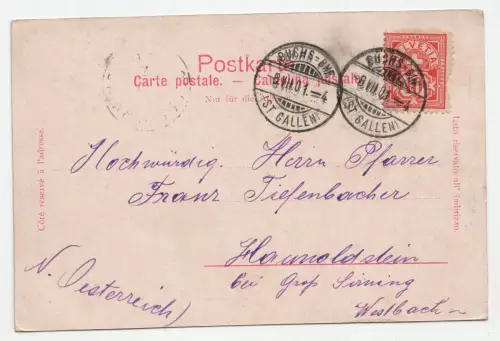 Postkarte
Carte postale. — Cartolina postale.
Nur für die
BUCHS-
8.VII.01.—4
(ST. GALLEN)
BUCHS-
8.VII.01.—4
(ST. GALLEN)
HELVETIA
Côté réservé à l'adresse.
Lato riservato all' indirizzo.
Hochwürdig. Herrn Pfarrer
Franz Tiefenbacher
Haunoldstein
bei Groß Sirning
Westbahn
N. Oesterreich)